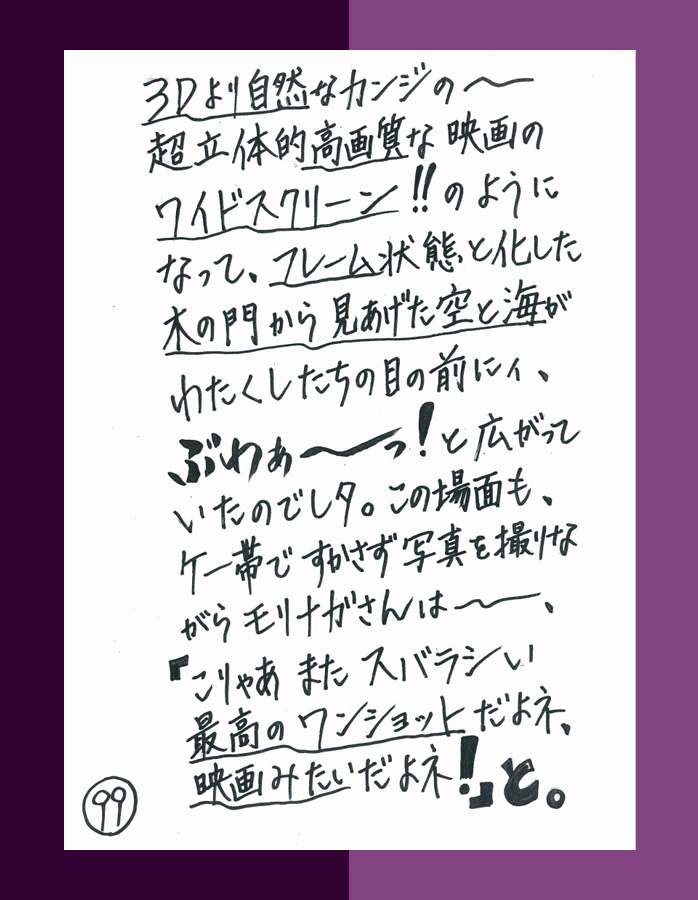 3Dより自然なカンジの〜
超立体的高画質な映画の
ワイドスクリーン!!のように
なって、フレーム状態と化した
木の門から見あげた空と海が
わたくしたちの目の前にィ、
ぶわぁ〜っ!と広がって
いたのでしタ。この場面も、
ケー帯ですかさず写真を撮りな
がらモリナガさんは〜、
「こりゃあまたスバラシい
最高のワンショットだよネ、
映画みたいだよネ!」と。
99